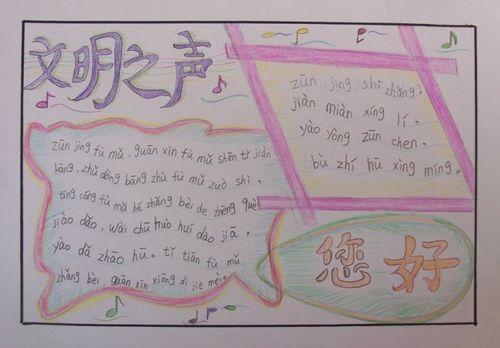 文明之声
zūn jìng fù mǔ, guān xīn fù mǔ shēn tǐ jiàn
kāng. zhǔ dòng bāng zhù fù mǔ zuò shì,
tīng cóng fù mǔ hé zhǎng bèi de zhèng què
jiào dǎo, wài chū huò huí dào jiā,
yào dǎ zhāo hū. tǐ tiān fù mǔ
zhǎng bèi, guān xīn xiōng dì jie mèi。
zūn jìng shī zhǎng,
jiàn miàn xíng lǐ,
yào yòng zūn chen,
bù zhí hū xìng míng。
您好